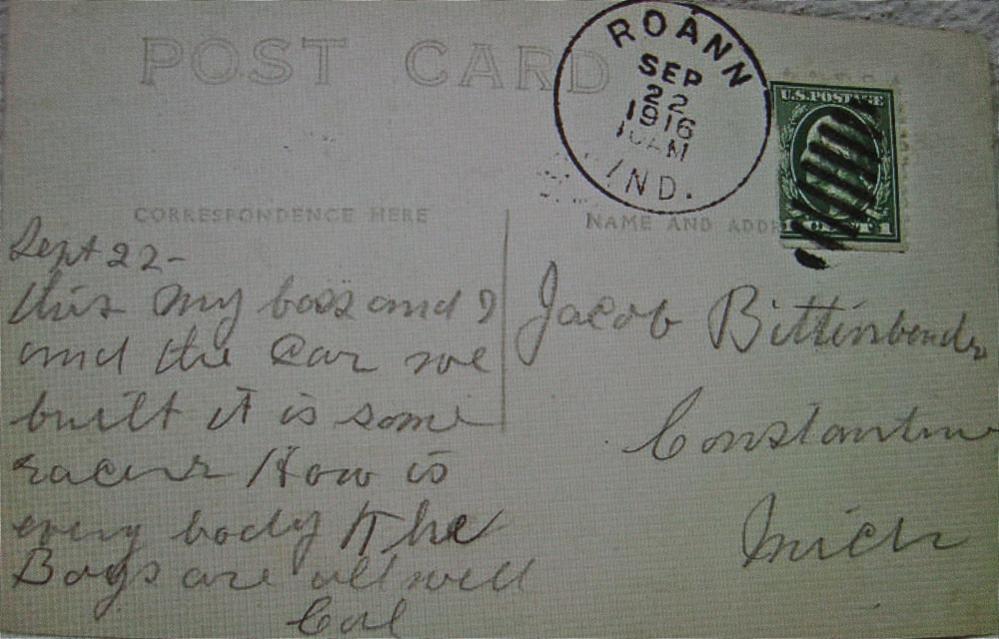 POST CARD
ROANN
SEP
22
1916
10 AM
IND.
U.S. POSTAGE
1
1
CORRESPONDENCE HERE
NAME AND ADDR
Sept 22-
this my boss and I
and the Car we
built it is some
racer How is
every body The
Boys are all well
Cal
Jacob Bittinbender
Constantine
Mich